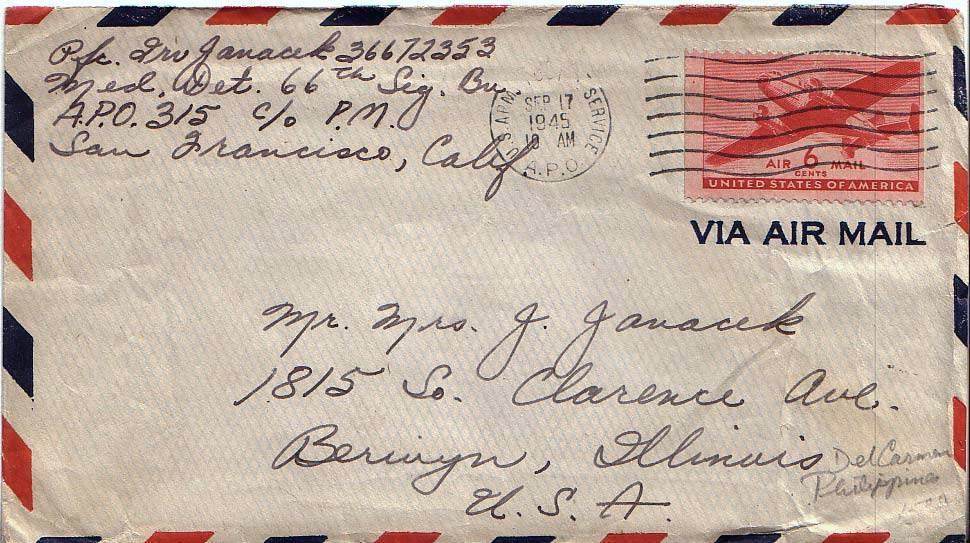 Pfc. Irv Janacek 36672353
Med. Det. 66th Sig. Bn.
A.P.O. 315 c/o P.M.
San Francisco, Calif
U.S. ARMY SERVICE
SEP 17
1945
10 AM
A.P.O.
AIR 6 MAIL
CENTS
UNITED STATES OF AMERICA
VIA AIR MAIL
Mr. Mrs. J. Janacek
1815 So. Clarence Ave.
Berwyn, Illinois
U.S.A.
Del Carmen
Philippines